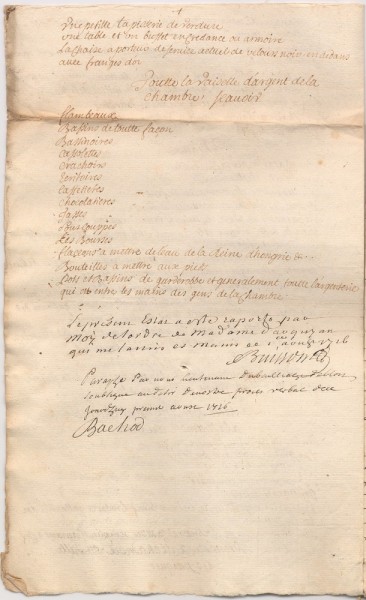 Une petite tapisserie de verdure
une table et un buffet en credance ou armoire
La chaise a porteur de service actuel de velours noir en dedans
avec franges dor
Toutte la Vaisselle dargent de la
chambre. Scavoir
flambeaux
Bassins de toutte façon
Bassinoires
Cassolettes
Crachoirs
Ecritoires
Caffetieres
chocolatieres
Tasses
Soucouppes
Les Bourses
flacons a mettre de leau de la Reine dhongrie &c.
Bouteilles a mettre aux pieds
Pots et Bassins de garderobbe et generalement toutte largenterie
qui est entre les mains des gens de la chambre
Le present Estat a esté raporté par
moy de lordre de Madame
qui me la mis es mains ce 1er aoust 1716
Paraphé par nous Lieutenant
au desir de nostre proces verbal de ce
jourdhuy premier aoust 1716
Bachod